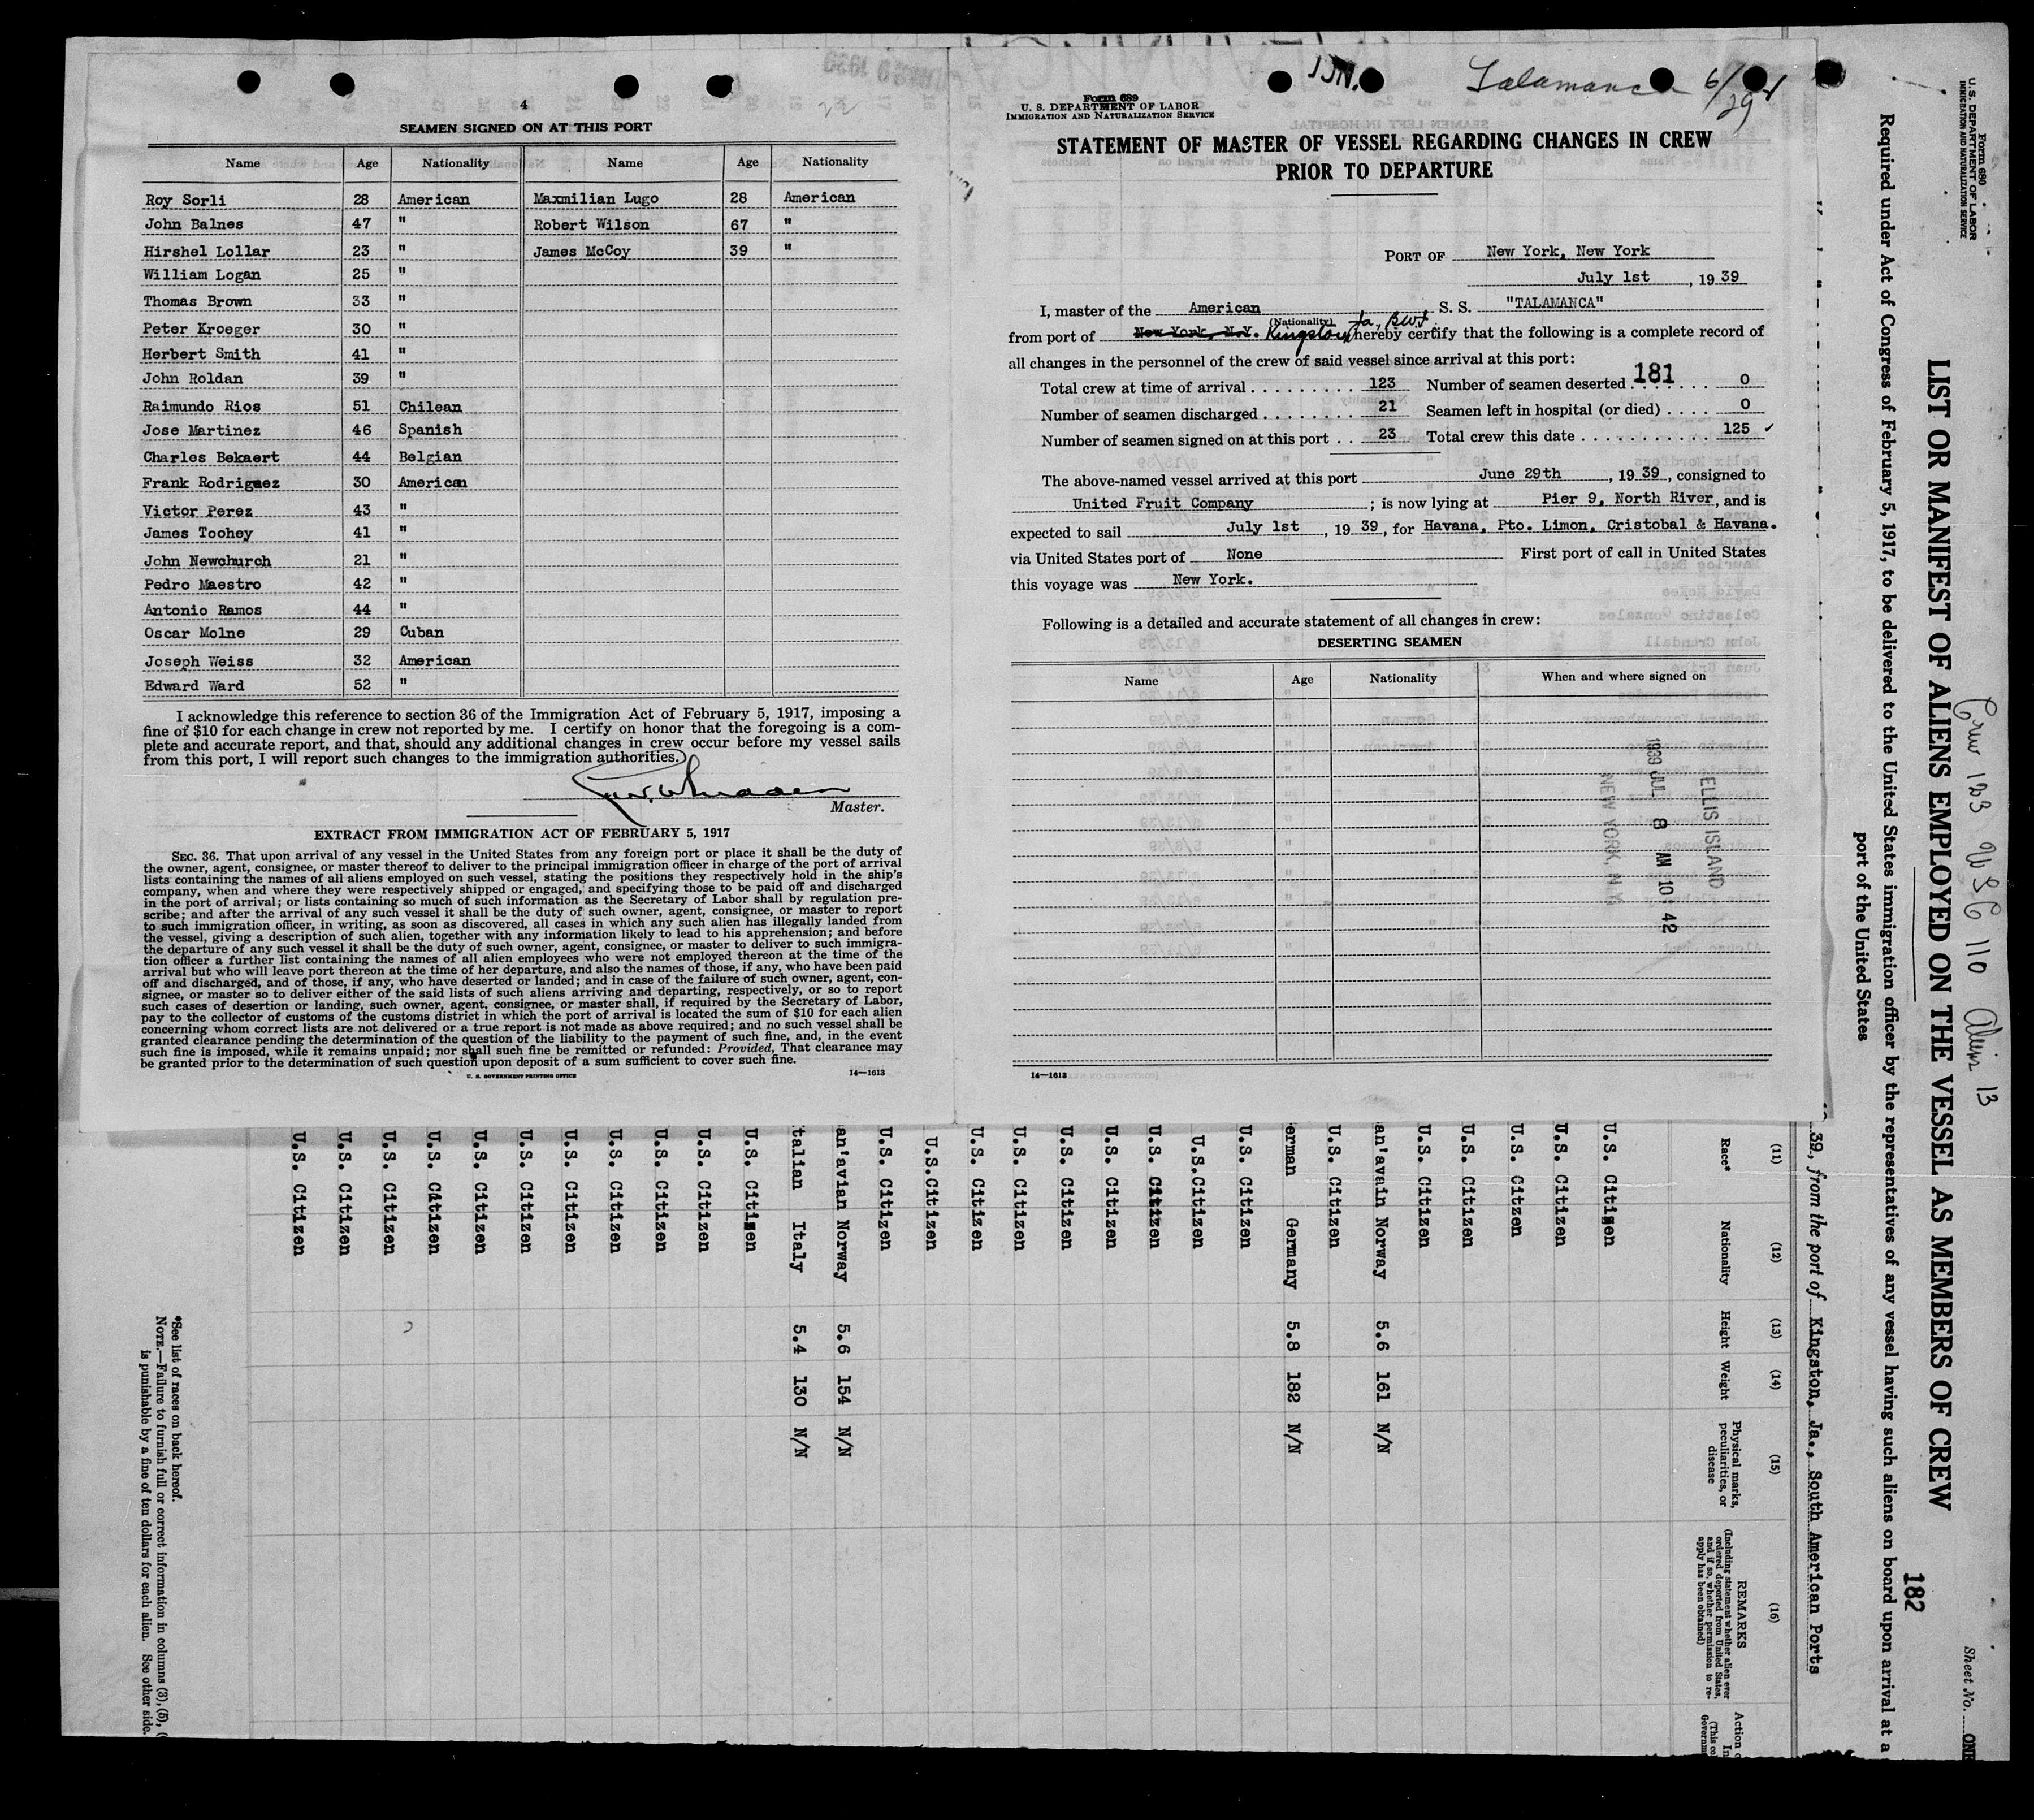 4
SEAMEN SIGNED ON AT THIS PORT
Name Age Nationality Name Age Nationality
Roy Sorli 28 American Maxmilian Lugo 28 American
John Balnes 47 " Robert Wilson 67 "
Hirshel Lollar 23 " James McCoy 39 "
William Logan 25 "
Thomas Brown 33 "
Peter Kroeger 30 "
Herbert Smith 41 "
John Roldan 39 "
Raimundo Rios 51 Chilean
Jose Martinez 46 Spanish
Charles Bekaert 44 Belgian
Frank Rodriguez 30 American
Victor Perez 43 "
James Toohey 41 "
John Newchurch 21 "
Pedro Maestro 42 "
Antonio Ramos 44 "
Oscar Molne 29 Cuban
Joseph Weiss 32 American
Edward Ward 52 "
I acknowledge this reference to section 36 of the Immigration Act of February 5, 1917, imposing a
fine of $10 for each change in crew not reported by me. I certify on honor that the foregoing is a com-
plete and accurate report, and that, should any additional changes in crew occur before my vessel sails
from this port, I will report such changes to the immigration authorities.
Master.
EXTRACT FROM IMMIGRATION ACT OF FEBRUARY 5, 1917
SEC. 36. That upon arrival of any vessel in the United States from any foreign port or place it shall be the duty of
the owner, agent, consignee, or master thereof to deliver to the principal immigration officer in charge of the port of arrival
lists containing the names of all aliens employed on such vessel, stating the positions they respectively hold in the ship's
company, when and where they were respectively shipped or engaged, and specifying those to be paid off and discharged
in the port of arrival; or lists containing so much of such information as the Secretary of Labor shall by regulation pre-
scribe; and after the arrival of any such vessel it shall be the duty of such owner, agent, consignee, or master to report
to such immigration officer, in writing, as soon as discovered, all cases in which any such alien has illegally landed from
the vessel, giving a description of such alien, together with any information likely to lead to his apprehension; and before
the departure of any such vessel it shall be the duty of such owner, agent, consignee, or master to deliver to such immigra-
tion officer a further list containing the names of all alien employees who were not employed thereon at the time of the
arrival but who will leave port thereon at the time of her departure, and also the names of those, if any, who have been paid
off and discharged, and of those, if any, who have deserted or landed; and in case of the failure of such owner, agent, con-
signee, or master so to deliver either of the said lists of such aliens arriving and departing, respectively, or so to report
such cases of desertion or landing, such owner, agent, consignee, or master shall, if required by the Secretary of Labor,
pay to the collector of customs of the customs district in which the port of arrival is located the sum of $10 for each alien
concerning whom correct lists are not delivered or a true report is not made as above required; and no such vessel shall be
granted clearance pending the determination of the question of the liability to the payment of such fine, and, in the event
such fine is imposed, while it remains unpaid; nor shall such fine be remitted or refunded: Provided, That clearance may
be granted prior to the determination of such question upon deposit of a sum sufficient to cover such fine.
U. S. GOVERNMENT PRINTING OFFICE 14—1613
Talamanca 6/29
Form 689
U. S. DEPARTMENT OF LABOR
IMMIGRATION AND NATURALIZATION SERVICE
STATEMENT OF MASTER OF VESSEL REGARDING CHANGES IN CREW
PRIOR TO DEPARTURE
PORT OF New York, New York
July 1st, 1939
I, master of the American S. S. "TALAMANCA"
(Nationality)
from port of New York, N.Y. Kingston Ja, BWI hereby certify that the following is a complete record of
all changes in the personnel of the crew of said vessel since arrival at this port:
181
Total crew at time of arrival 123 Number of seamen deserted 0
Number of seamen discharged 21 Seamen left in hospital (or died) 0
Number of seamen signed on at this port 23 Total crew this date 125 ✓
The above-named vessel arrived at this port June 29th, 1939, consigned to
United Fruit Company; is now lying at Pier 9, North River, and is
expected to sail July 1st, 1939, for Havana, Pto. Limon, Cristobal & Havana.
via United States port of None First port of call in United States
this voyage was New York.
Following is a detailed and accurate statement of all changes in crew:
DESERTING SEAMEN
Name Age Nationality When and where signed on
ELLIS ISLAND
1939 JUL 8 AM 10:42
NEW YORK, N.Y.
14—1613
Form 680
U.S. DEPARTMENT OF LABOR
IMMIGRATION AND NATURALIZATION SERVICE
Sheet No. ONE
Crew 123 USC 110 Aliens 13
LIST OR MANIFEST OF ALIENS EMPLOYED ON THE VESSEL AS MEMBERS OF CREW
182
Required under Act of Congress of February 5, 1917, to be delivered to the United States immigration officer by the representatives of any vessel having such aliens on board upon arrival at a
port of the United States
39, from the port of Kingston, Ja., South American Ports
(11) (12) (13) (14) (15) (16)
Race* Nationality Height Weight Physical marks, peculiarities, or disease REMARKS
(Including statement whether alien ever ordered deported from United States, and if so, whether permission to re-apply has been obtained)
U.S. Citizen
U.S. Citizen
U.S. Citizen
U.S. Citizen
U.S. Citizen
an'avain Norway 5.6 161 N/N
U.S. Citizen
erman Germany 5.8 182 N/N
U.S. Citizen
U.S.Citizen
U.S. Citizen
U.S. Citizen
U.S. Citizen
U.S. Citizen
U.S. Citizen
U.S.Citizen
U.S. Citizen
an'avian Norway 5.6 154 N/N
talian Italy 5.4 130 N/N
U.S. Citizen
U.S. Citizen
U.S. Citizen
U.S. Citizen
U.S. Citizen
U.S. Citizen
U.S. Citizen
U.S. Citizen
U.S. Citizen
U.S. Citizen
U.S. Citizen
*See list of races on back hereof.
NOTE.—Failure to furnish full or correct information in columns (3), (5), (
is punishable by a fine of ten dollars for each alien. See other side.